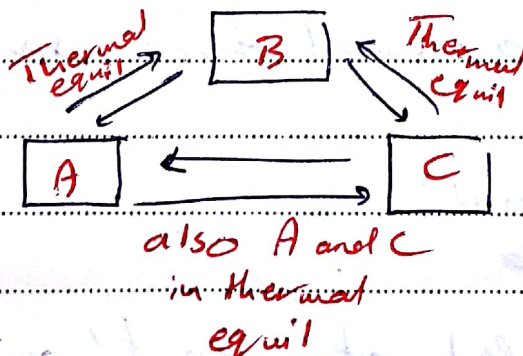 Thermal
equil
B
Thermal
equil
A
C
also A and C
in thermal
equil